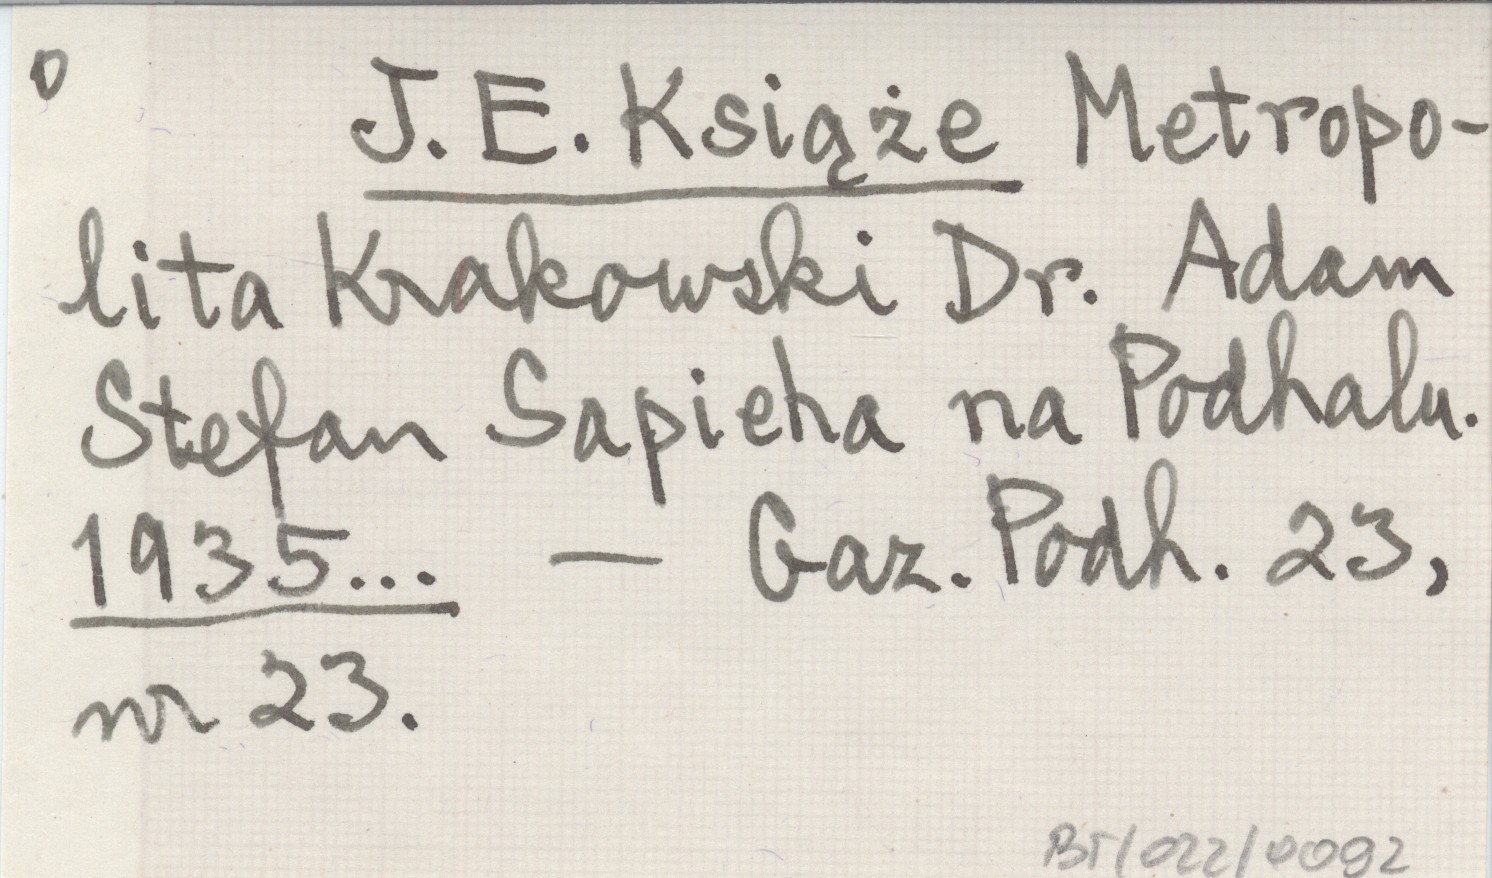 0
J. E. Książe Metropo-
lita Krakowski Dr. Adam
Stefan Sapieha na Podhalu.
1935... — Gaz. Podh. 23,
nr 23.
BT/022/0092